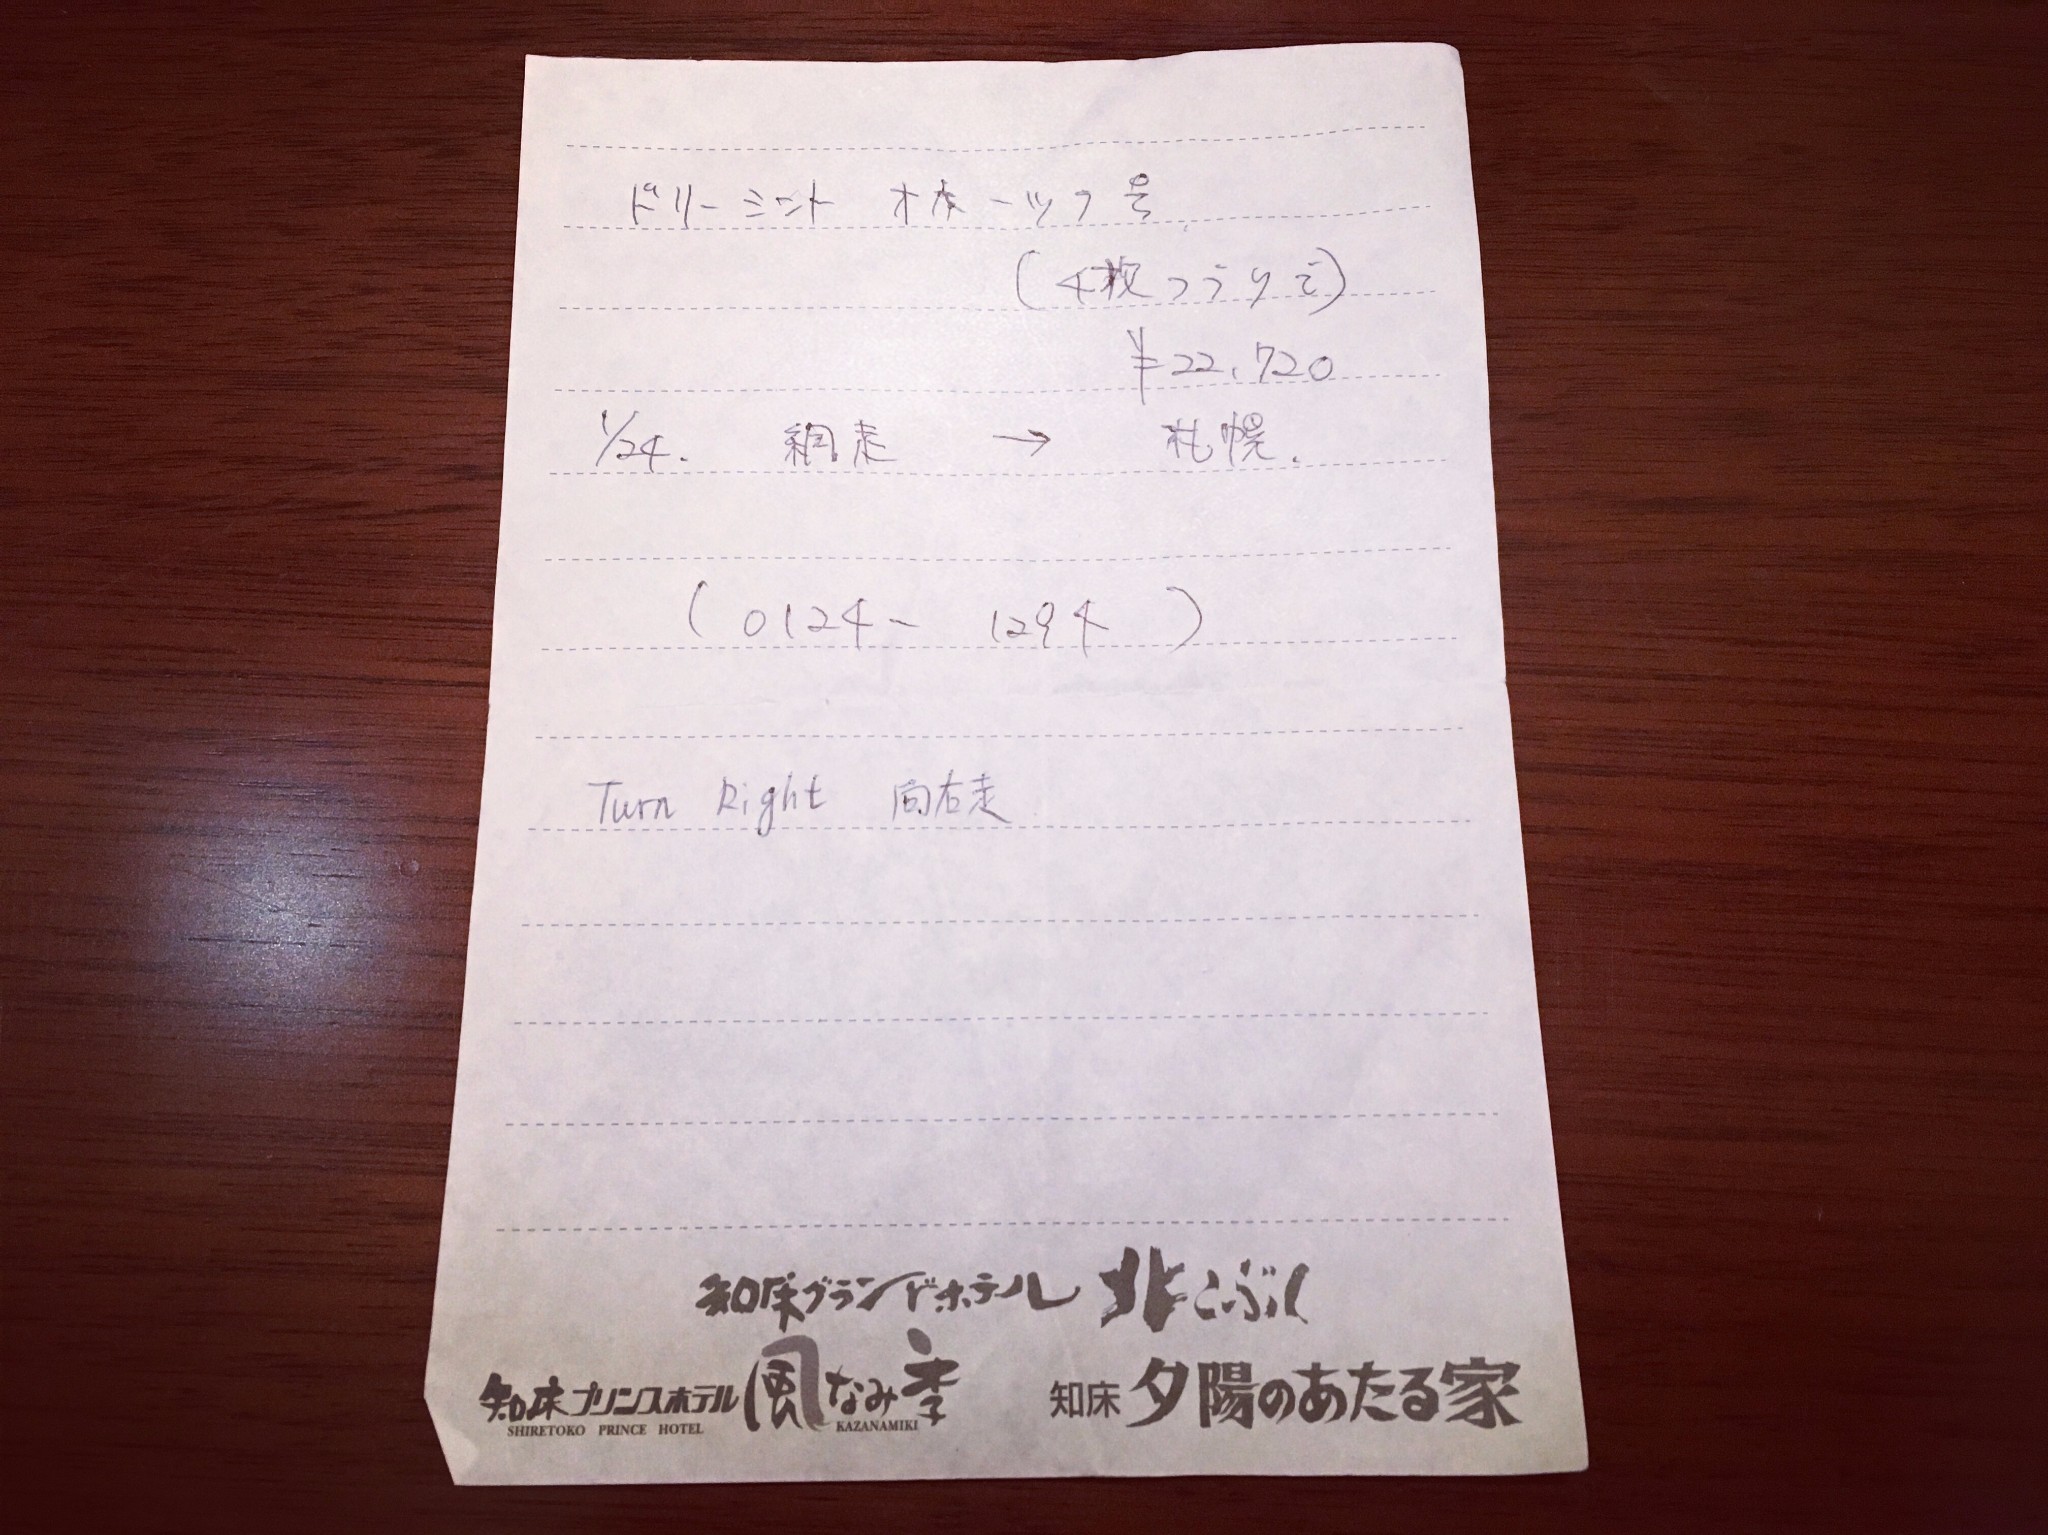 ドリーミント オホーツク号
(4枚つづりで)
¥22,720
1/24. 網走 → 札幌.
(0124- 1294)
Turn Right 向右走
知床グランドホテル 北こぶし
知床プリンスホテル 風なみ季
SHIRETOKO PRINCE HOTEL KAZANAMIKI
知床 夕陽のあたる家